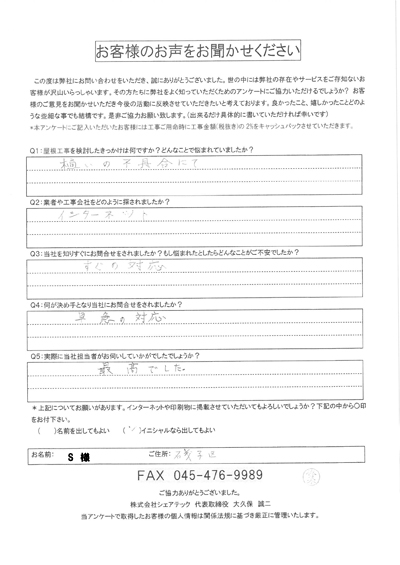 お客様のお声をお聞かせください
この度は弊社にお問い合わせをいただき、誠にありがとうございました。世の中には弊社の存在やサービスをご存知ないお
客様が沢山いらっしゃいます。その方たちに弊社をよく知っていただくためのアンケートにご協力いただけるでしょうか？ お客
様のご意見をお聞かせいただき今後の活動に反映させていただきたいと考えております。良かったこと、嬉しかったことどのよ
うな些細な事でも結構です。是非ご協力お願い致します。（出来るだけ具体的に書いていただければ幸いです）
*本アンケートにご記入いただいたお客様には工事ご用命時に工事金額（税抜き）の2%をキャッシュバックさせていただきます。
Q1：屋根工事を検討したきっかけは何ですか？どんなことで悩まれていましたか？
樋いの不具合にて
Q2：業者や工事会社をどのように探されましたか？
インターネット
Q3：当社を知りすぐにお問合せをされましたか？もし悩まれたとしたらどんなことがご不安でしたか？
すぐの対応
Q4：何が決め手となり当社にお問合せをされましたか？
早急の対応
Q5：実際に当社担当者がお伺いしていかがでしたでしょうか？
最高でした。
＊上記についてお願いがあります。インターネットや印刷物に掲載させていただいてもよろしいでしょうか？下記の中から〇印
をお付下さい。
（　）名前を出してもよい （　）イニシャルなら出してもよい
お名前： S 様 ご住所： 磯子区
FAX 045-476-9989
ご協力ありがとうございました。
株式会社シェアテック 代表取締役 大久保 誠二
当アンケートで取得したお客様の個人情報は関係法規に基づき厳正に管理いたします。